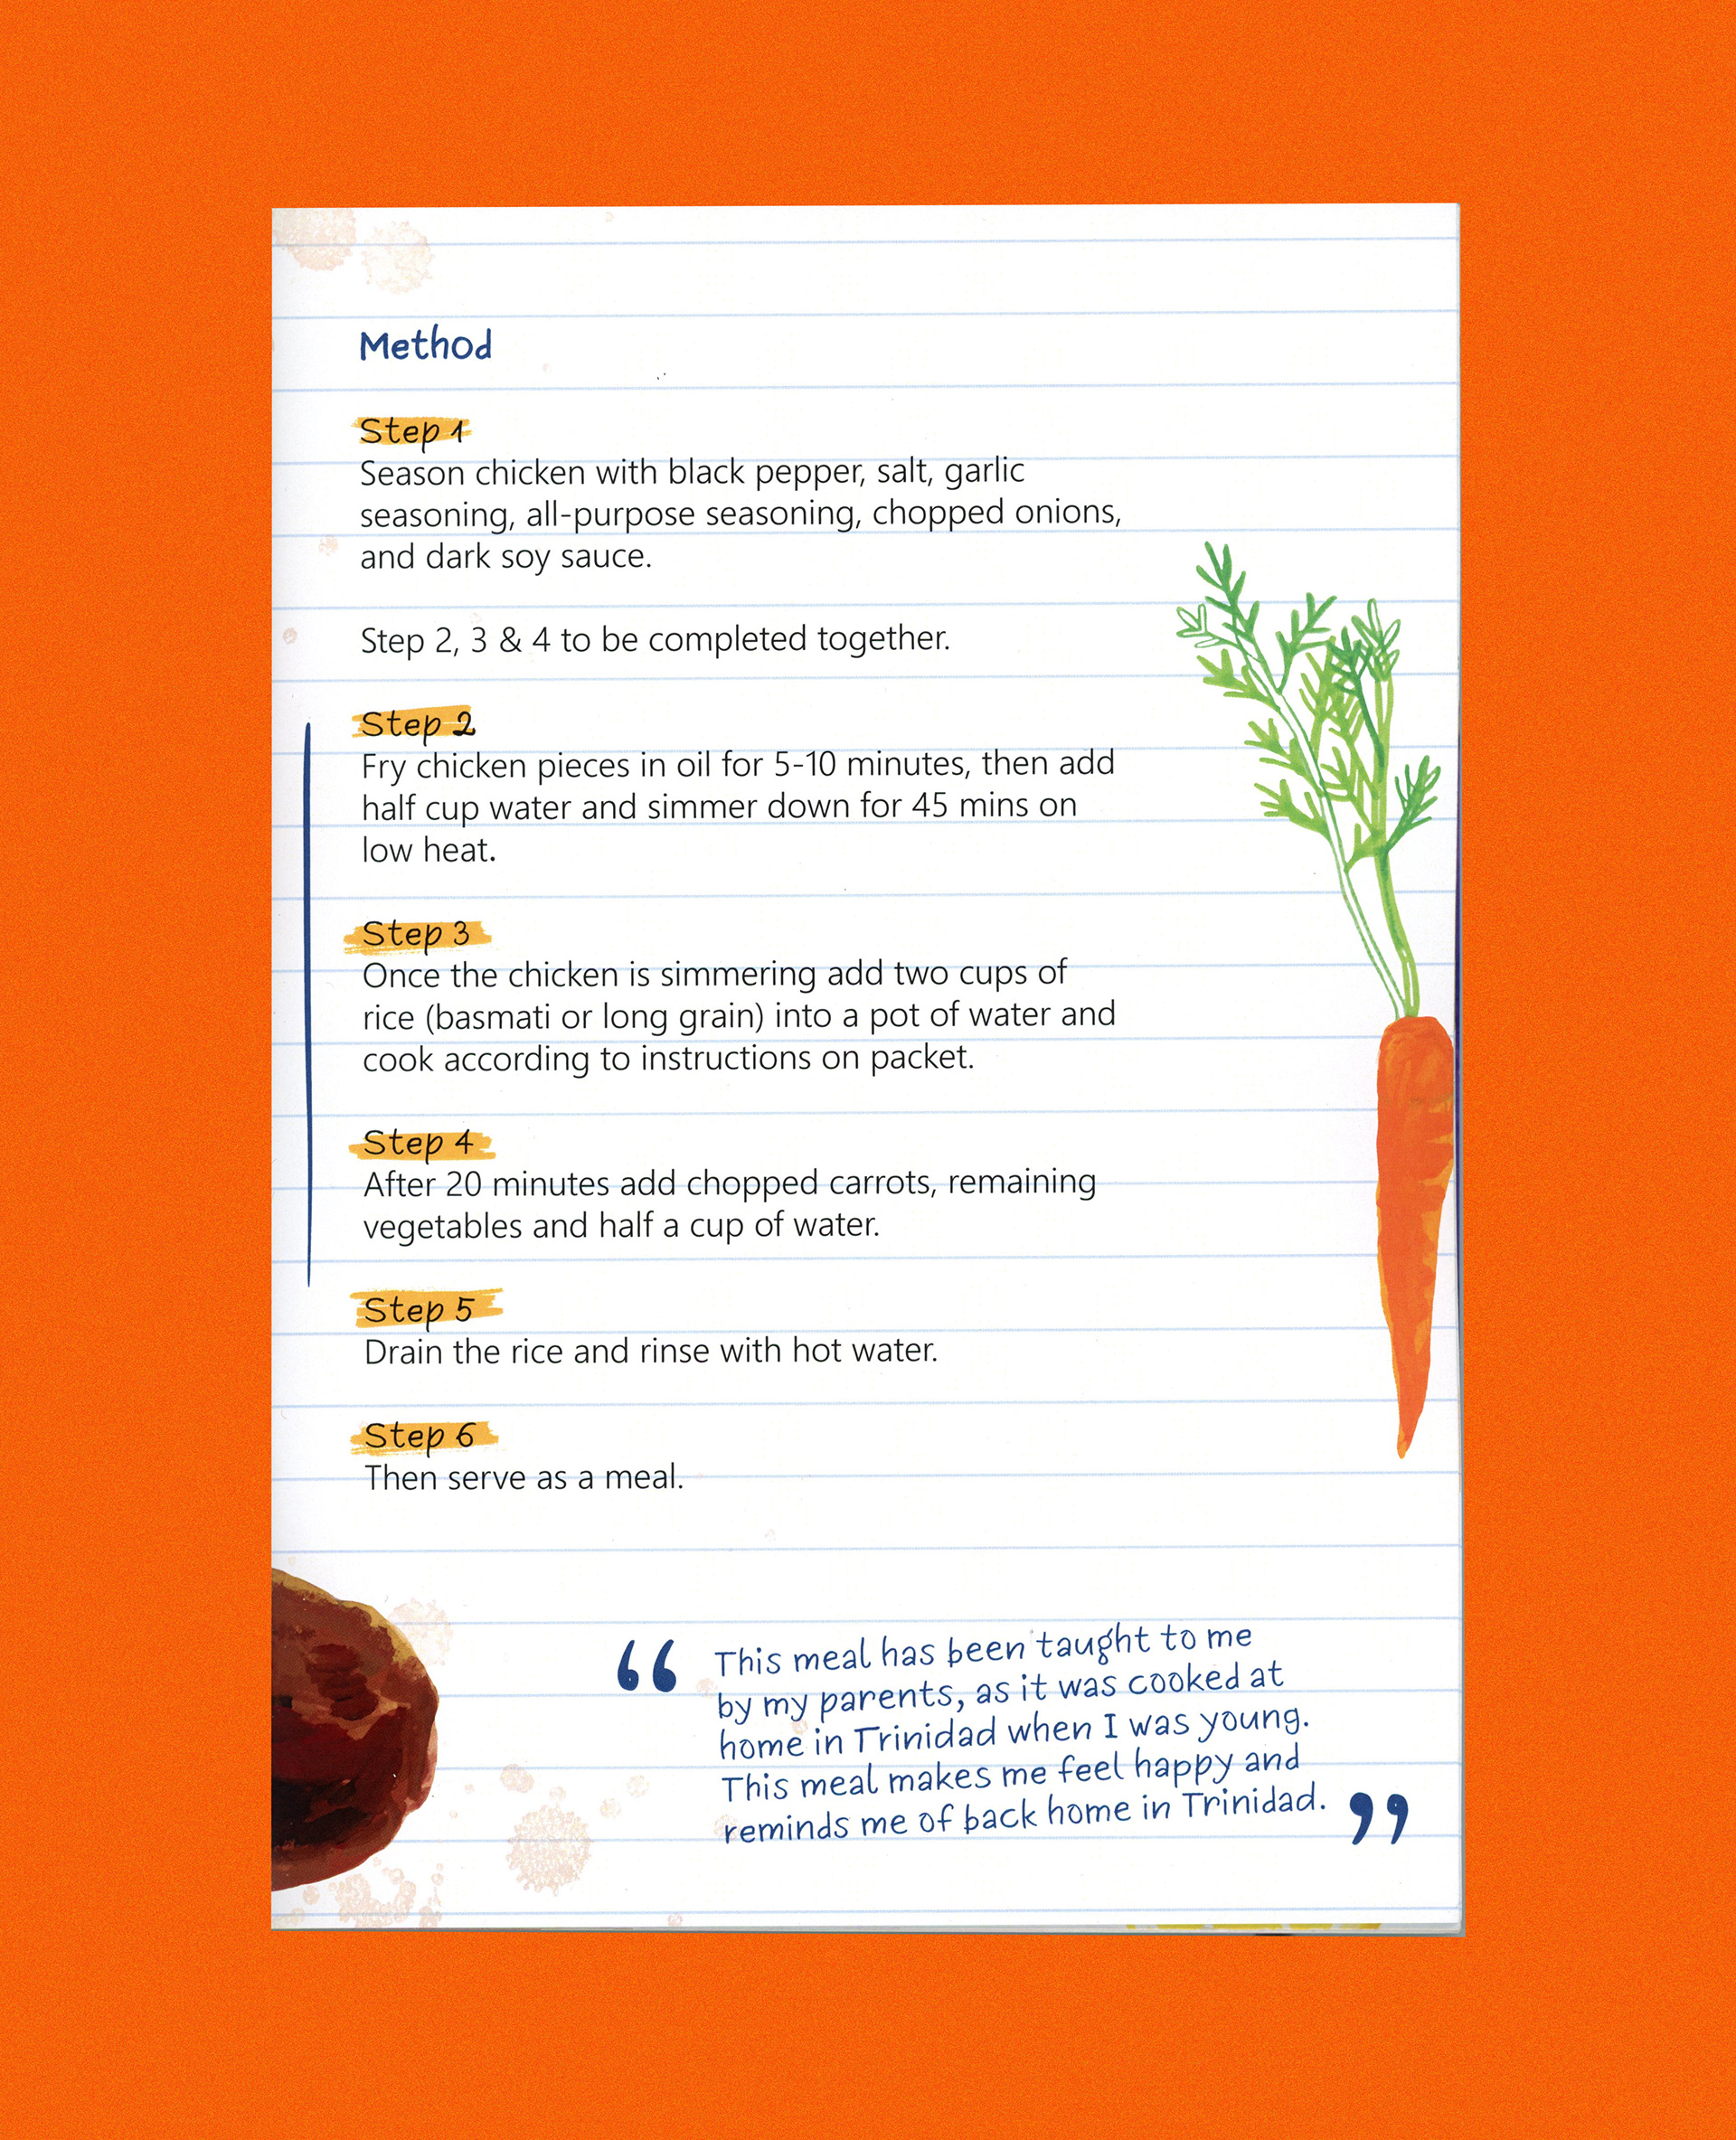 Method
Step 1
Season chicken with black pepper, salt, garlic
seasoning, all-purpose seasoning, chopped onions,
and dark soy sauce.
Step 2, 3 & 4 to be completed together.
Step 2
Fry chicken pieces in oil for 5-10 minutes, then add
half cup water and simmer down for 45 mins on
low heat.
Step 3
Once the chicken is simmering add two cups of
rice (basmati or long grain) into a pot of water and
cook according to instructions on packet.
Step 4
After 20 minutes add chopped carrots, remaining
vegetables and half a cup of water.
Step 5
Drain the rice and rinse with hot water.
Step 6
Then serve as a meal.
“ This meal has been taught to me
by my parents, as it was cooked at
home in Trinidad when I was young.
This meal makes me feel happy and
reminds me of back home in Trinidad. ”